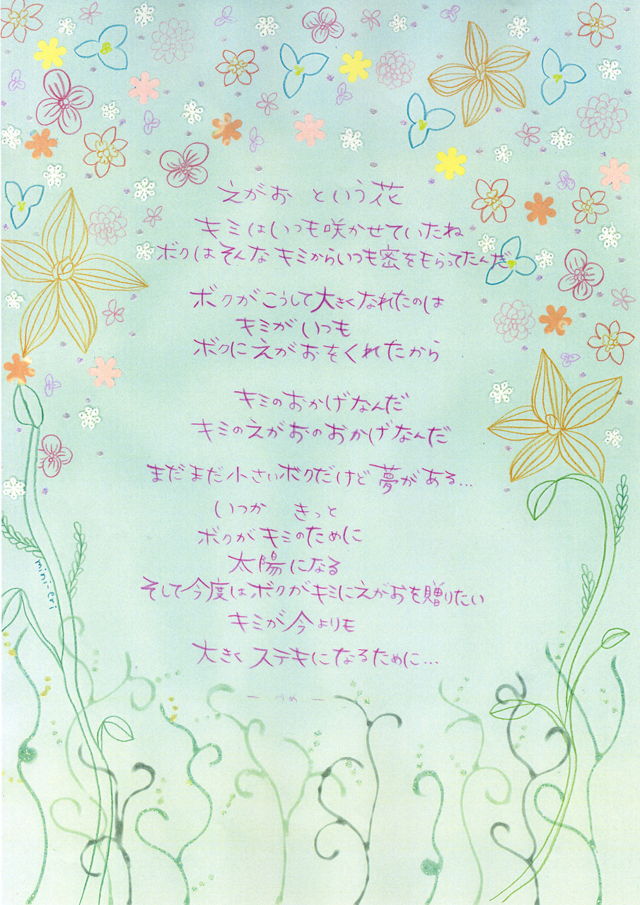 えがお という花
キミはいつも咲かせていたね
ボクはそんなキミからいつも密をもらってたんだ
ボクがこうして大きくなれたのは
キミがいつも
ボクにえがおをくれたから
キミのおかげなんだ
キミのえがおのおかげなんだ
まだまだ小さいボクだけど夢がある…
いつか きっと
ボクがキミのために
太陽になる
そして今度はボクがキミにえがおを贈りたい
キミが今よりも
大きくステキになるために…
ー ゆめ ー
mini-eri